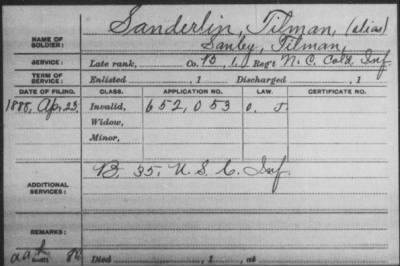 NAME OF SOLDIER: Sanderlin, Tilman, (alias)
Sanley, Tilman,
SERVICE: Late rank, Co. B, 1, Reg't N. C. Cold. Inf.
TERM OF SERVICE: Enlisted , 1 Discharged , 1
DATE OF FILING. CLASS. APPLICATION NO. LAW. CERTIFICATE NO.
1888, Ap. 23, Invalid, 652,053
Widow,
Minor,
ADDITIONAL SERVICES: B. 35. U. S. C. Inf.
REMARKS:
Died , 1 , at